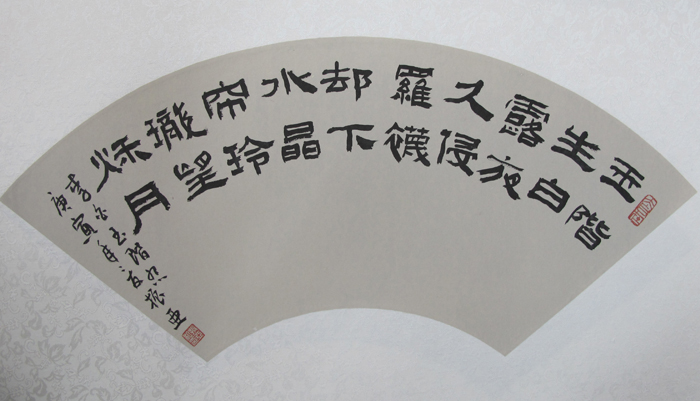 玉階
生白
露夜
久侵
羅襪
却下
水晶
帘玲
瓏望
秋月
李白玉階怨
庚寅年 振亞